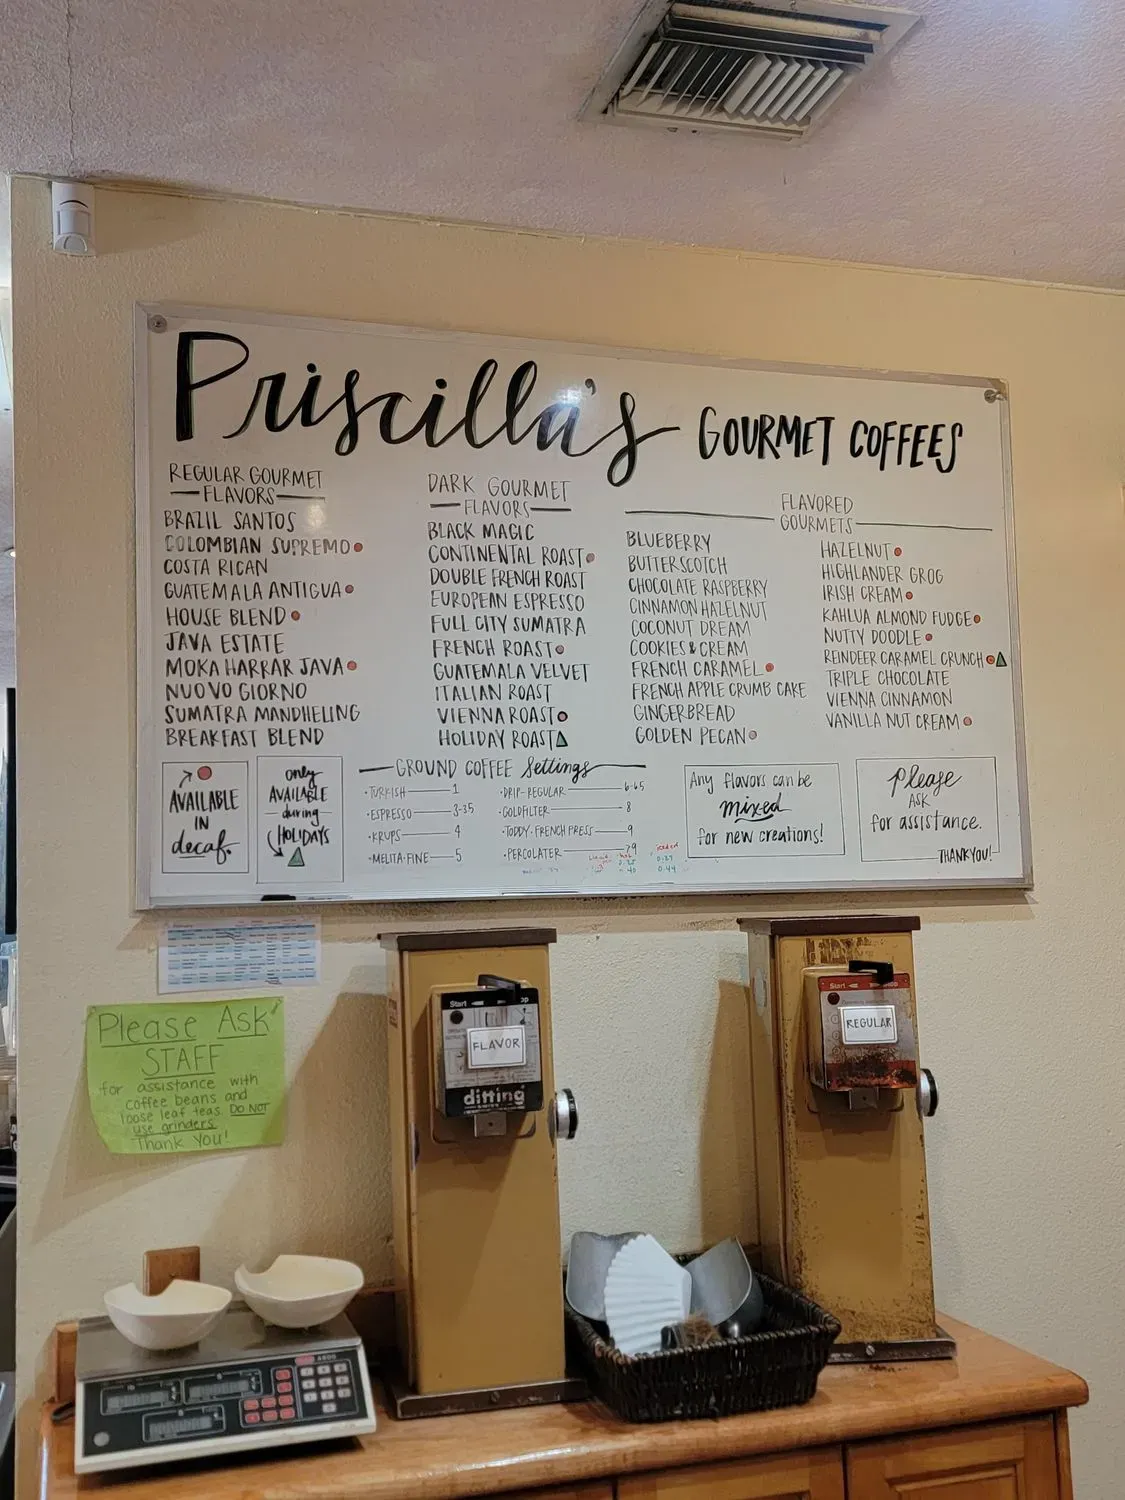 Priscilla's GOURMET COFFEES
REGULAR GOURMET
FLAVORS
BRAZIL SANTOS
COLOMBIAN SUPREMO
COSTA RICAN
GUATEMALA ANTIGUA
HOUSE BLEND
JAVA ESTATE
MOKA HARRAR JAVA
NUOVO GIORNO
SUMATRA MANDHELING
BREAKFAST BLEND
DARK GOURMET
FLAVORS
BLACK MAGIC
CONTINENTAL ROAST
DOUBLE FRENCH ROAST
EUROPEAN ESPRESSO
FULL CITY SUMATRA
FRENCH ROAST
GUATEMALA VELVET
ITALIAN ROAST
VIENNA ROAST
HOLIDAY ROAST
FLAVORED
GOURMETS
BLUEBERRY
BUTTERSCOTCH
CHOCOLATE RASPBERRY
CINNAMON HAZELNUT
COCONUT DREAM
COOKIES & CREAM
FRENCH CARAMEL
FRENCH APPLE CRUMB CAKE
GINGERBREAD
GOLDEN PECAN
HAZELNUT
HIGHLANDER GROG
IRISH CREAM
KAHLUA ALMOND FUDGE
NUTTY DOODLE
REINDEER CARAMEL CRUNCH
TRIPLE CHOCOLATE
VIENNA CINNAMON
VANILLA NUT CREAM
AVAILABLE
IN
decaf.
only
AVAILABLE
during
HOLIDAYS
GROUND COFFEE settings
·TURKISH 1
·ESPRESSO 3-3.5
·KRUPS 4
·MELITA·FINE 5
·DRIP-REGULAR 6-6.5
·GOLDFILTER 8
·TODDY·FRENCH PRESS 9
·PERCOLATER 9
Any flavors can be
mixed
for new creations!
please
ASK
for assistance.
THANK YOU!
Please Ask
STAFF
for assistance with
coffee beans and
loose leaf teas. DO NOT
use grinders.
Thank You!
Start
FLAVOR
ditting
Start
REGULAR